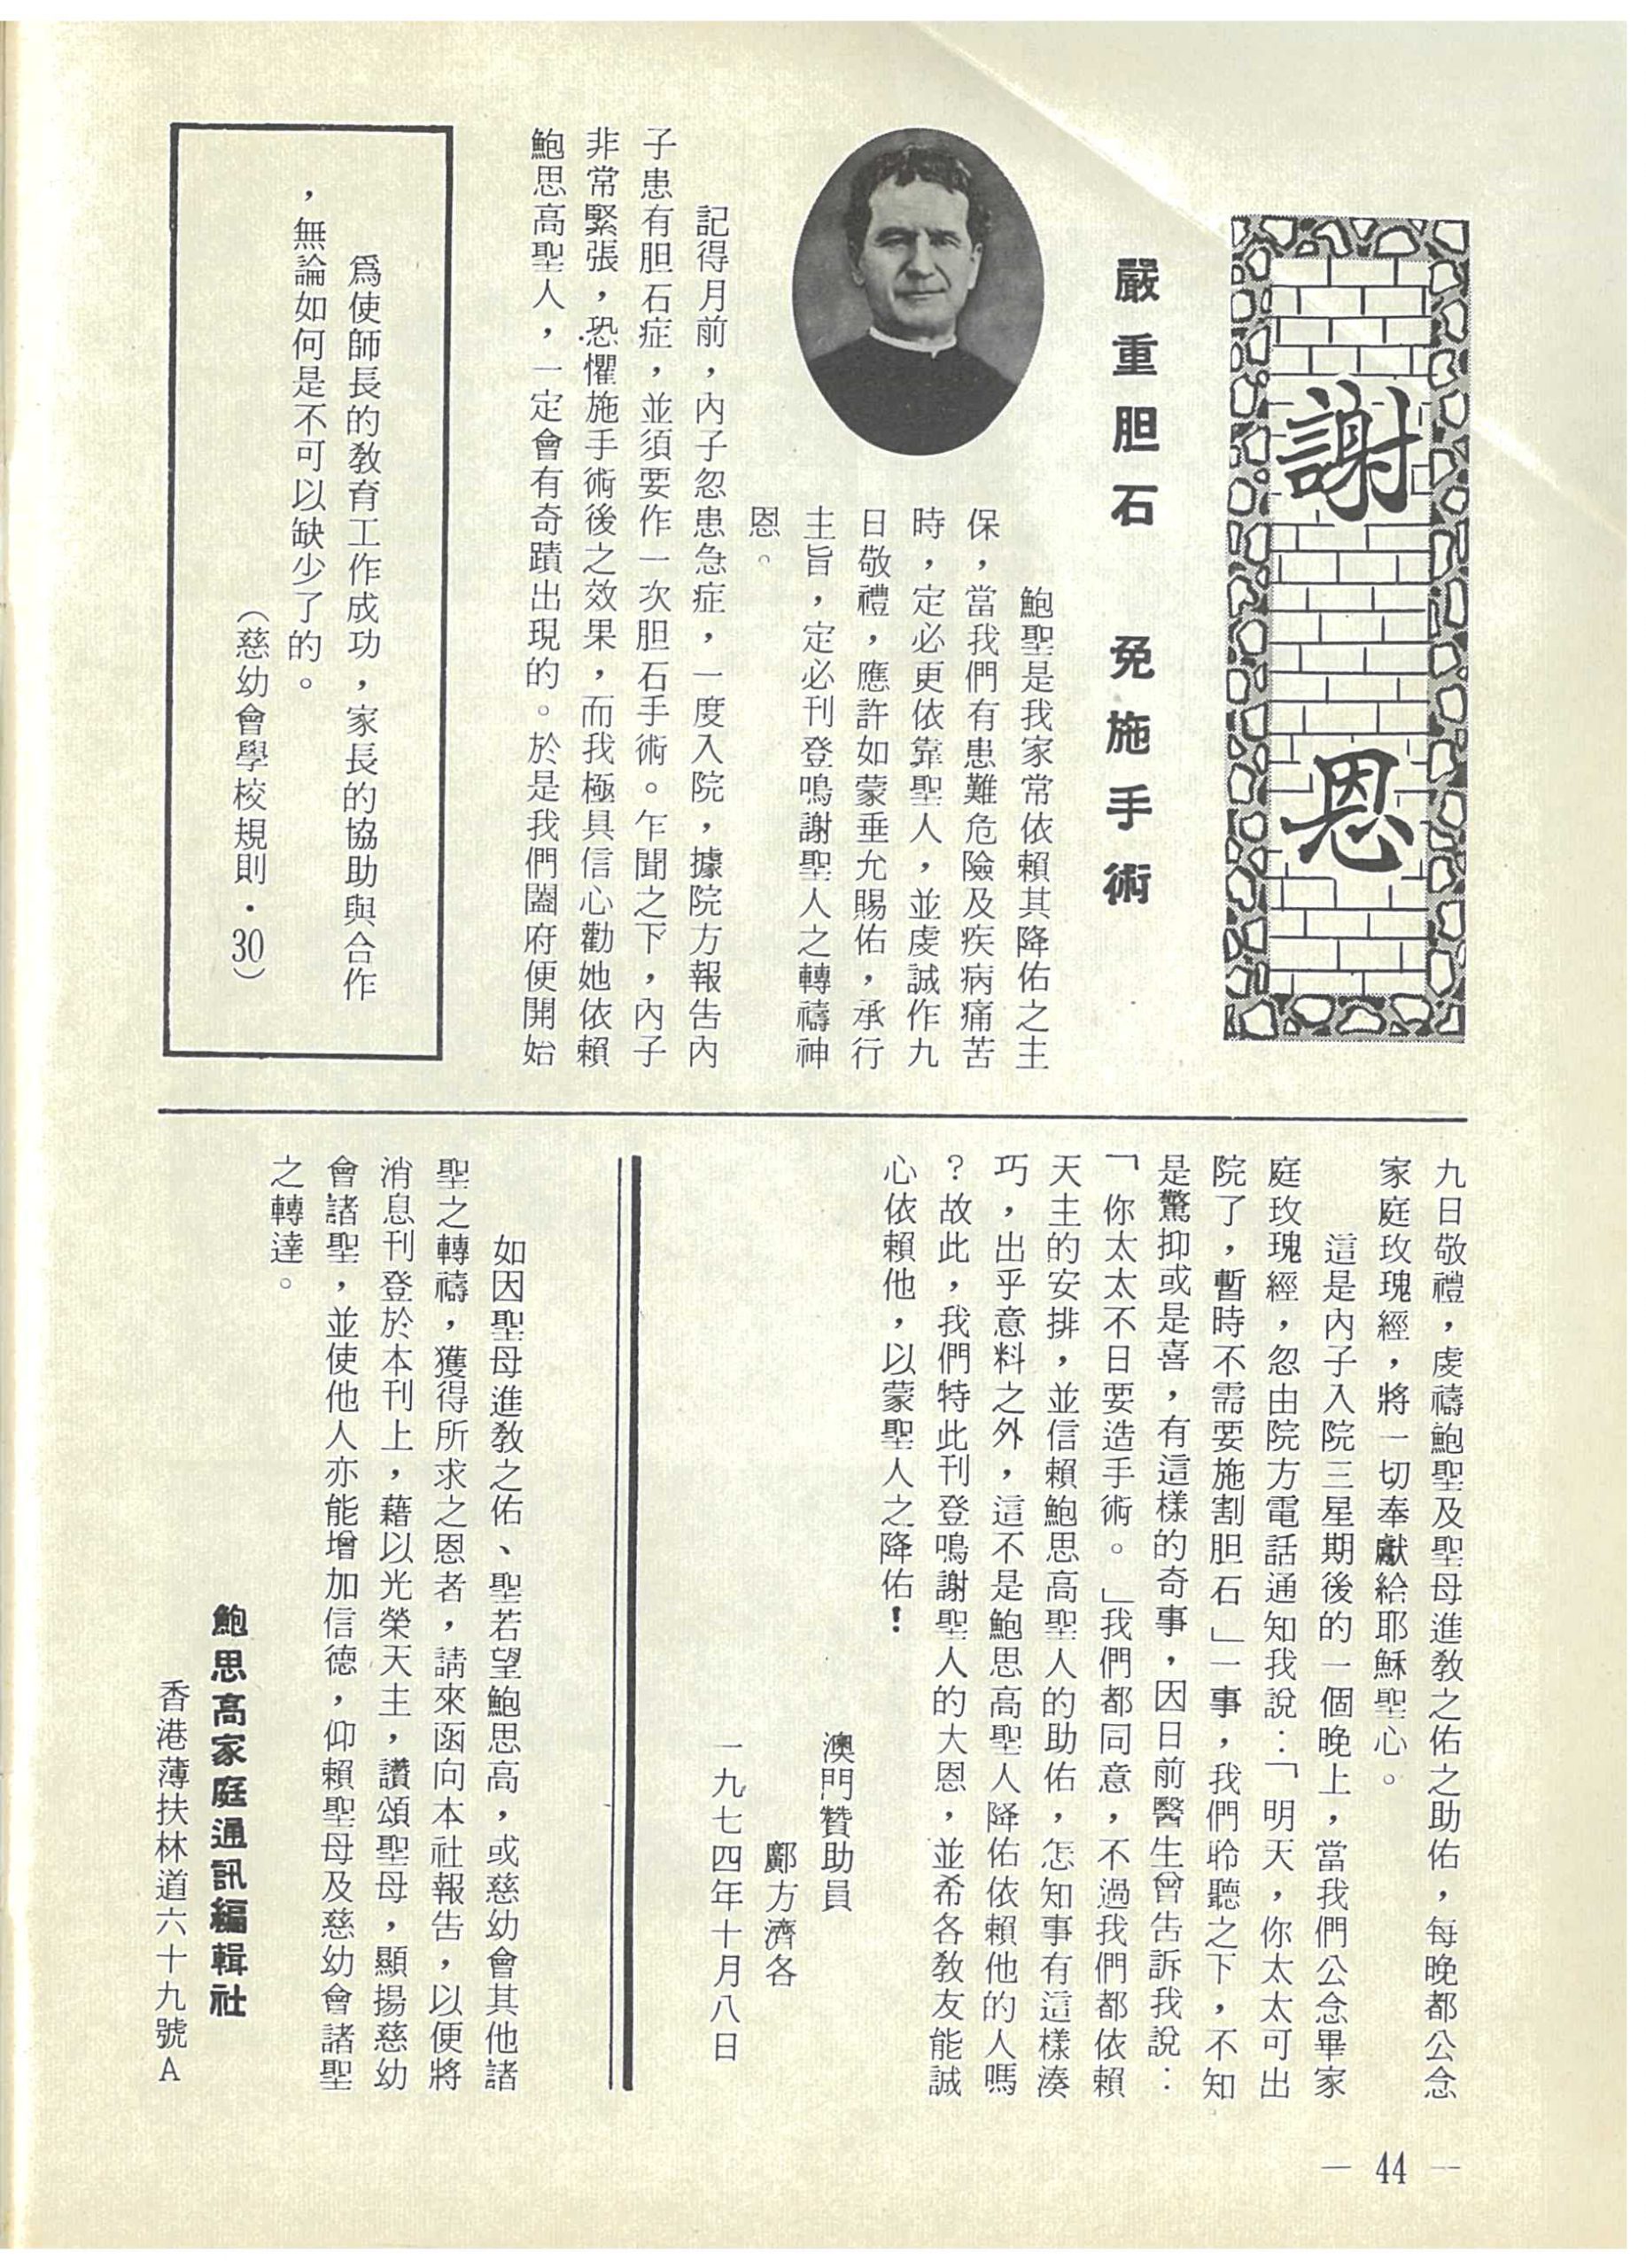 謝恩
嚴重胆石　免施手術
鮑聖是我家常依賴其降佑之主
保，當我們有患難危險及疾病痛苦
時，定必更依靠聖人，並虔誠作九
日敬禮，應許如蒙垂允賜佑，承行
主旨，定必刊登鳴謝聖人之轉禱神
恩。
記得月前，內子忽患急症，一度入院，據院方報告內
子患有胆石症，並須要作一次胆石手術。乍聞之下，內子
非常緊張，恐懼施手術後之效果，而我極具信心勸她依賴
鮑思高聖人，一定會有奇蹟出現的。於是我們闔府便開始
爲使師長的教育工作成功，家長的協助與合作
，無論如何是不可以缺少了的。
（慈幼會學校規則・30）
九日敬禮，虔禱鮑聖及聖母進教之佑之助佑，每晚都公念
家庭玫瑰經，將一切奉獻給耶穌聖心。
這是內子入院三星期後的一個晚上，當我們公念畢家
庭玫瑰經，忽由院方電話通知我說：「明天，你太太可出
院了，暫時不需要施割胆石」一事，我們聆聽之下，不知
是驚抑或是喜，有這樣的奇事，因日前醫生曾告訴我說：
「你太太不日要造手術。」我們都同意，不過我們都依賴
天主的安排，並信賴鮑思高聖人的助佑，怎知事有這樣湊
巧，出乎意料之外，這不是鮑思高聖人降佑依賴他的人嗎
？故此，我們特此刊登鳴謝聖人的大恩，並希各教友能誠
心依賴他，以蒙聖人之降佑！
澳門贊助員
鄺方濟各
一九七四年十月八日
如因聖母進教之佑、聖若望鮑思高，或慈幼會其他諸
聖之轉禱，獲得所求之恩者，請來函向本社報告，以便將
消息刊登於本刊上，藉以光榮天主，讚頌聖母，顯揚慈幼
會諸聖，並使他人亦能增加信德，仰賴聖母及慈幼會諸聖
之轉達。
鮑思高家庭通訊編輯社
香港薄扶林道六十九號A
— 44 —